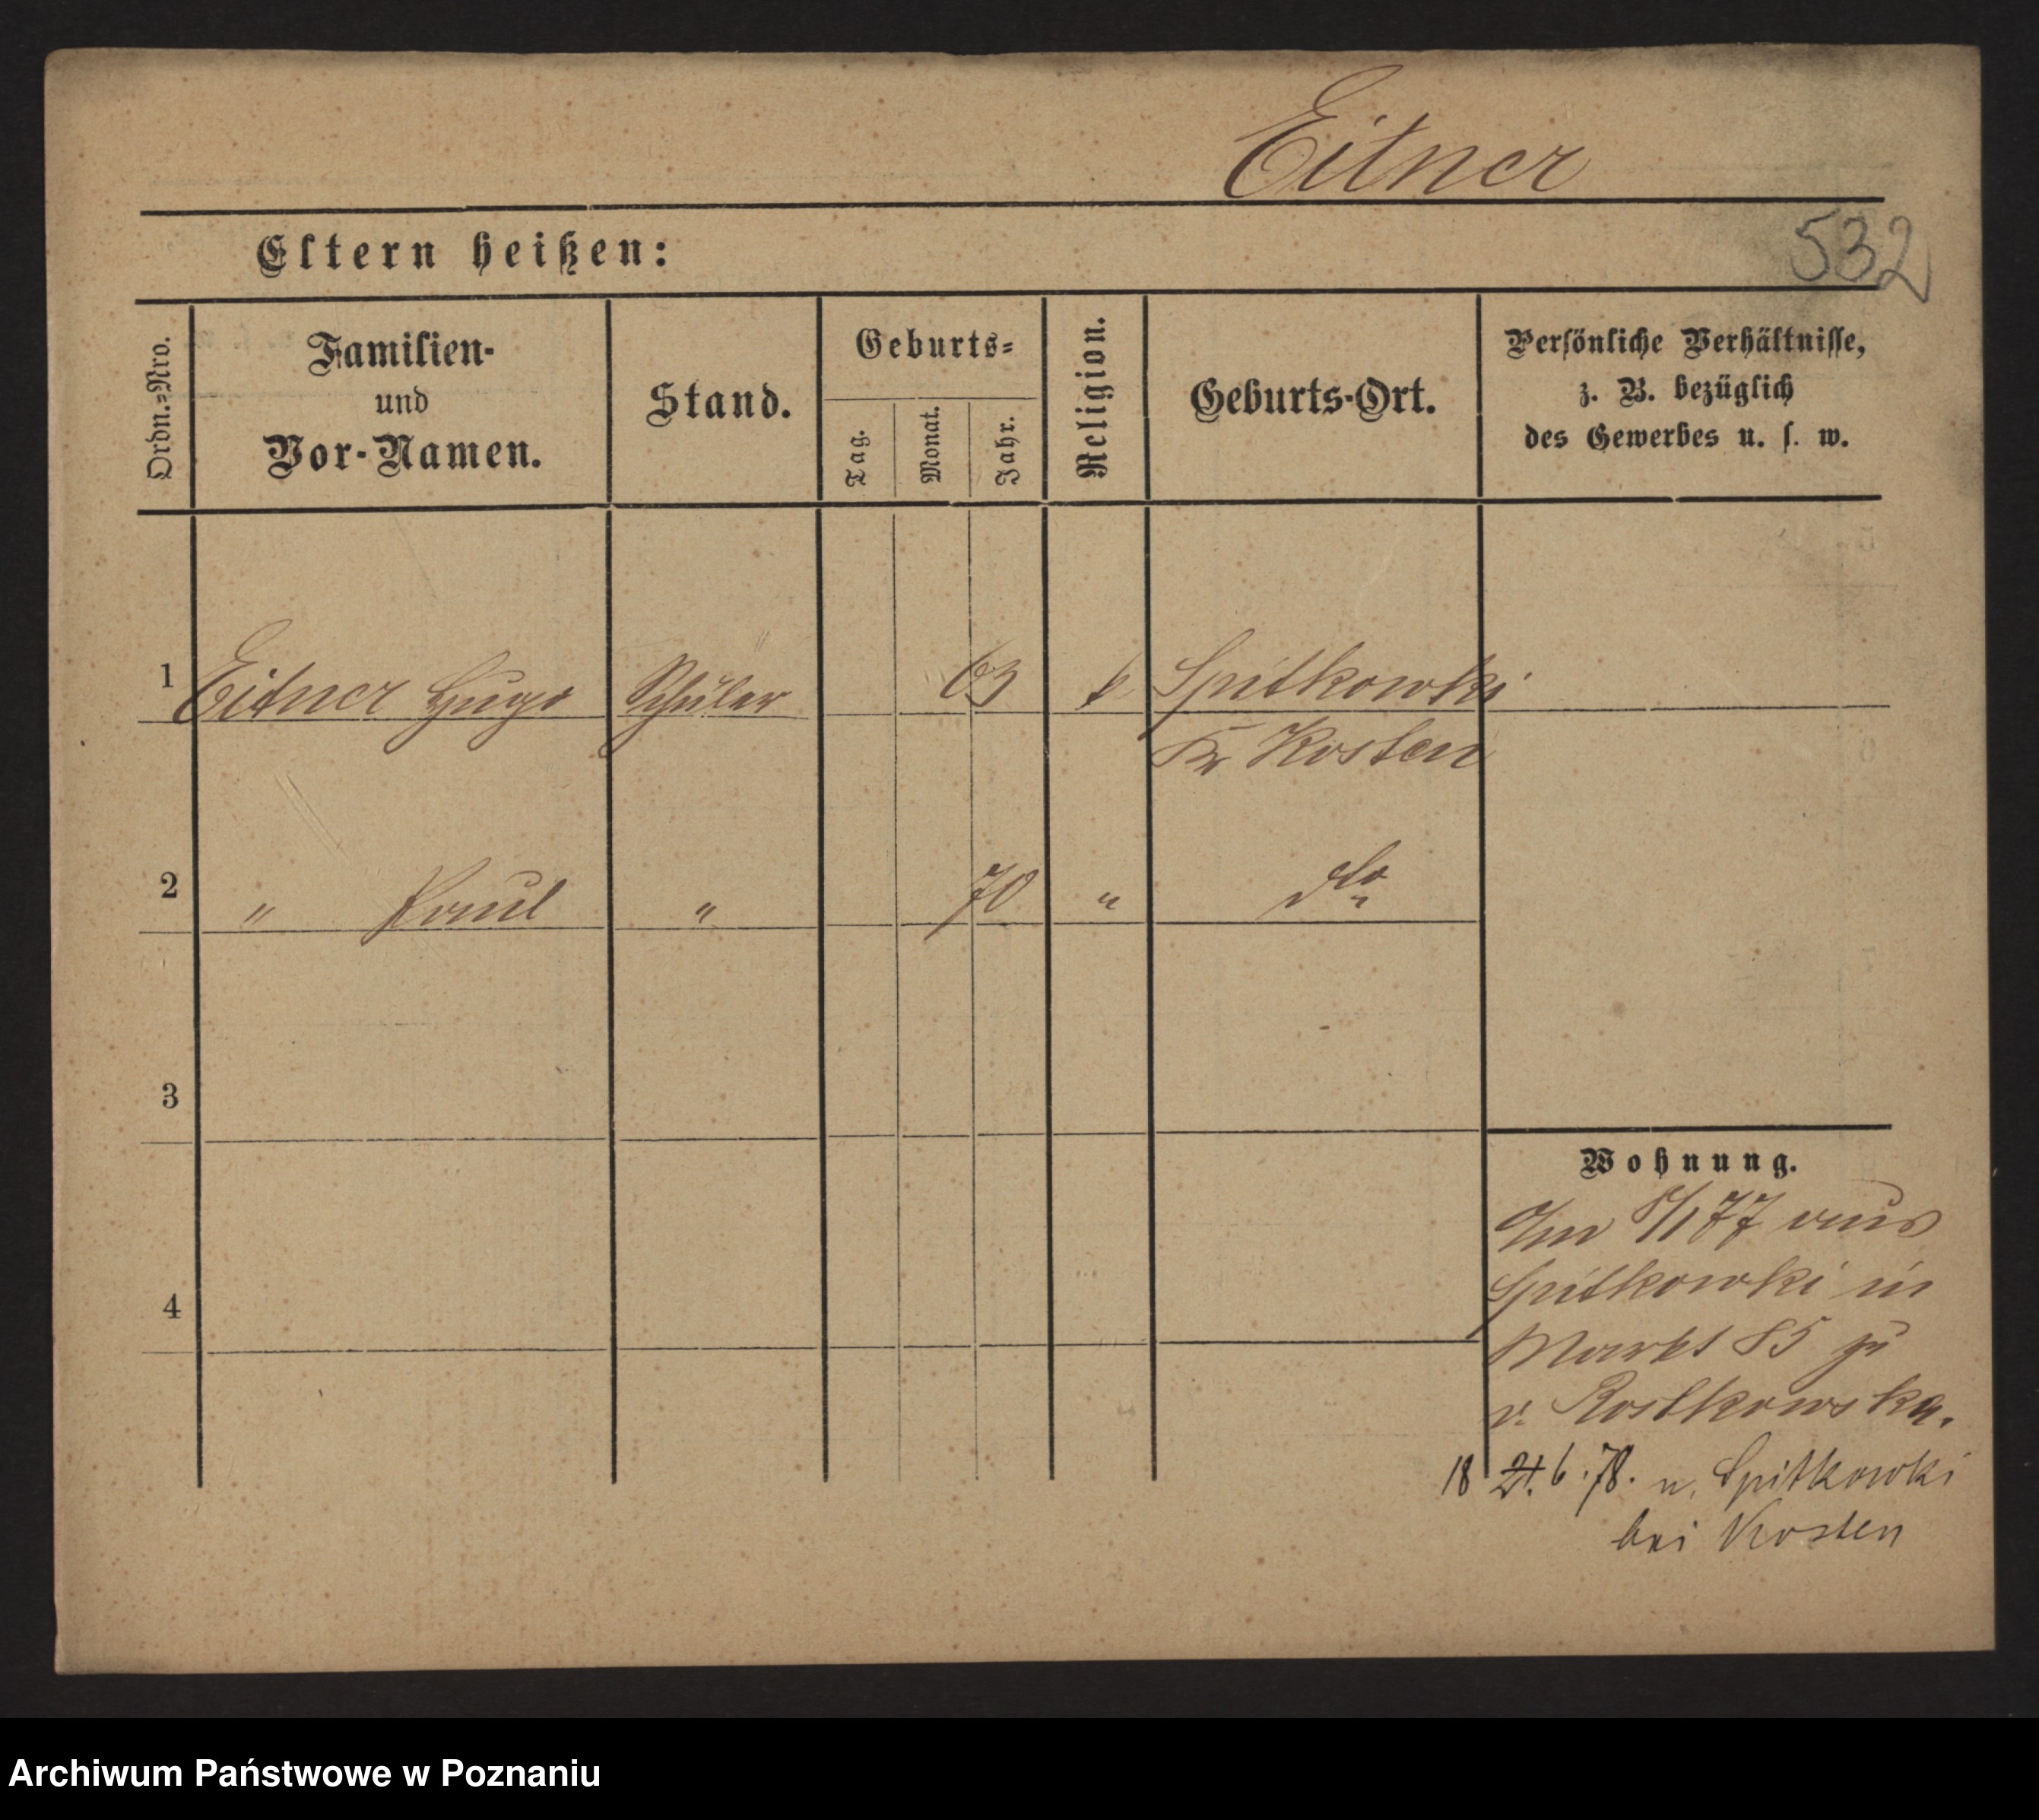 Eitner
532
Eltern heißen:
Ordn.=Nro.
Familien-
und
Vor-Namen.
Stand.
Geburts=
Tag.
Monat.
Jahr.
Religion.
Geburts-Ort.
Persönliche Verhältnisse,
z. B. bezüglich
des Gewerbes u. s. w.
1 Eitner Hugo Schüler 63 k Spitkowki
Kr Kosten
2 " Paul " 70 " do
3
4
Wohnung.
Am 8/1 77 aus
Spitkowki in
Markt 85 zu
v. Rostkowska.
18 21. 6. 78. n. Spitkowki
bei Kosten
Archiwum Państwowe w Poznaniu